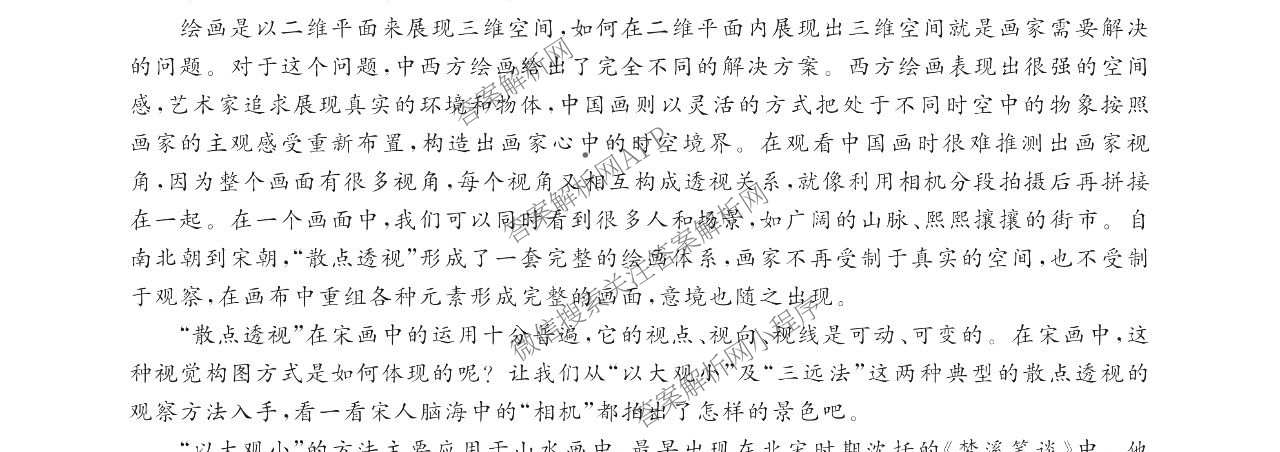 绘画是以二维平面来展现三维空间,如何在二维平面内展现出三维空间就是画家需要解决
的问题。对于这个问题,中西方绘画给出了完全不同的解决方案。西方绘画表现出很强的空间
感,艺术家追求展现真实的环境和物体,中国画则以灵活的方式把处于不同时空中的物象按照
画家的主观感受重新布置,构造出画家心中的时空境界。在观看中国画时很难推测出画家视
角,因为整个画面有很多视角,每个视角又相互构成透视关系,就像利用相机分段拍摄后再拼接
在一起。在一个画面中,我们可以同时看到很多人和场景,如广阔的山脉、熙熙攘攘的街市。自
南北朝到宋朝,“散点透视”形成了一套完整的绘画体系,画家不再受制于真实的空间,也不受制
于观察,在画布中重组各种元素形成完整的画面,意境也随之出现。
“散点透视”在宋画中的运用十分普遍,它的视点、视向、视线是可动、可变的。在宋画中,这
种视觉构图方式是如何体现的呢?让我们从“以大观小”及“三远法”这两种典型的散点透视的
观察方法入手,看一看宋人脑海中的“相机”都拍出了怎样的景色吧。
“以大观小”的方法主要应用于山水画中,最早出现在北宋时期沈括的《梦溪笔谈》中。他
答案解析网
答案解析网APP
微信搜索关注答案解析网
答案解析网小程序